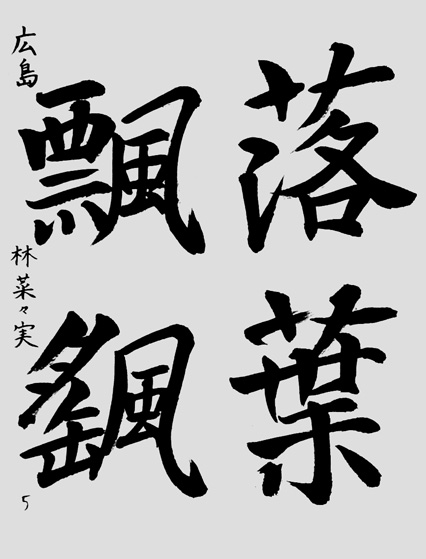 落葉
飄颻
広島 林菜々実 5